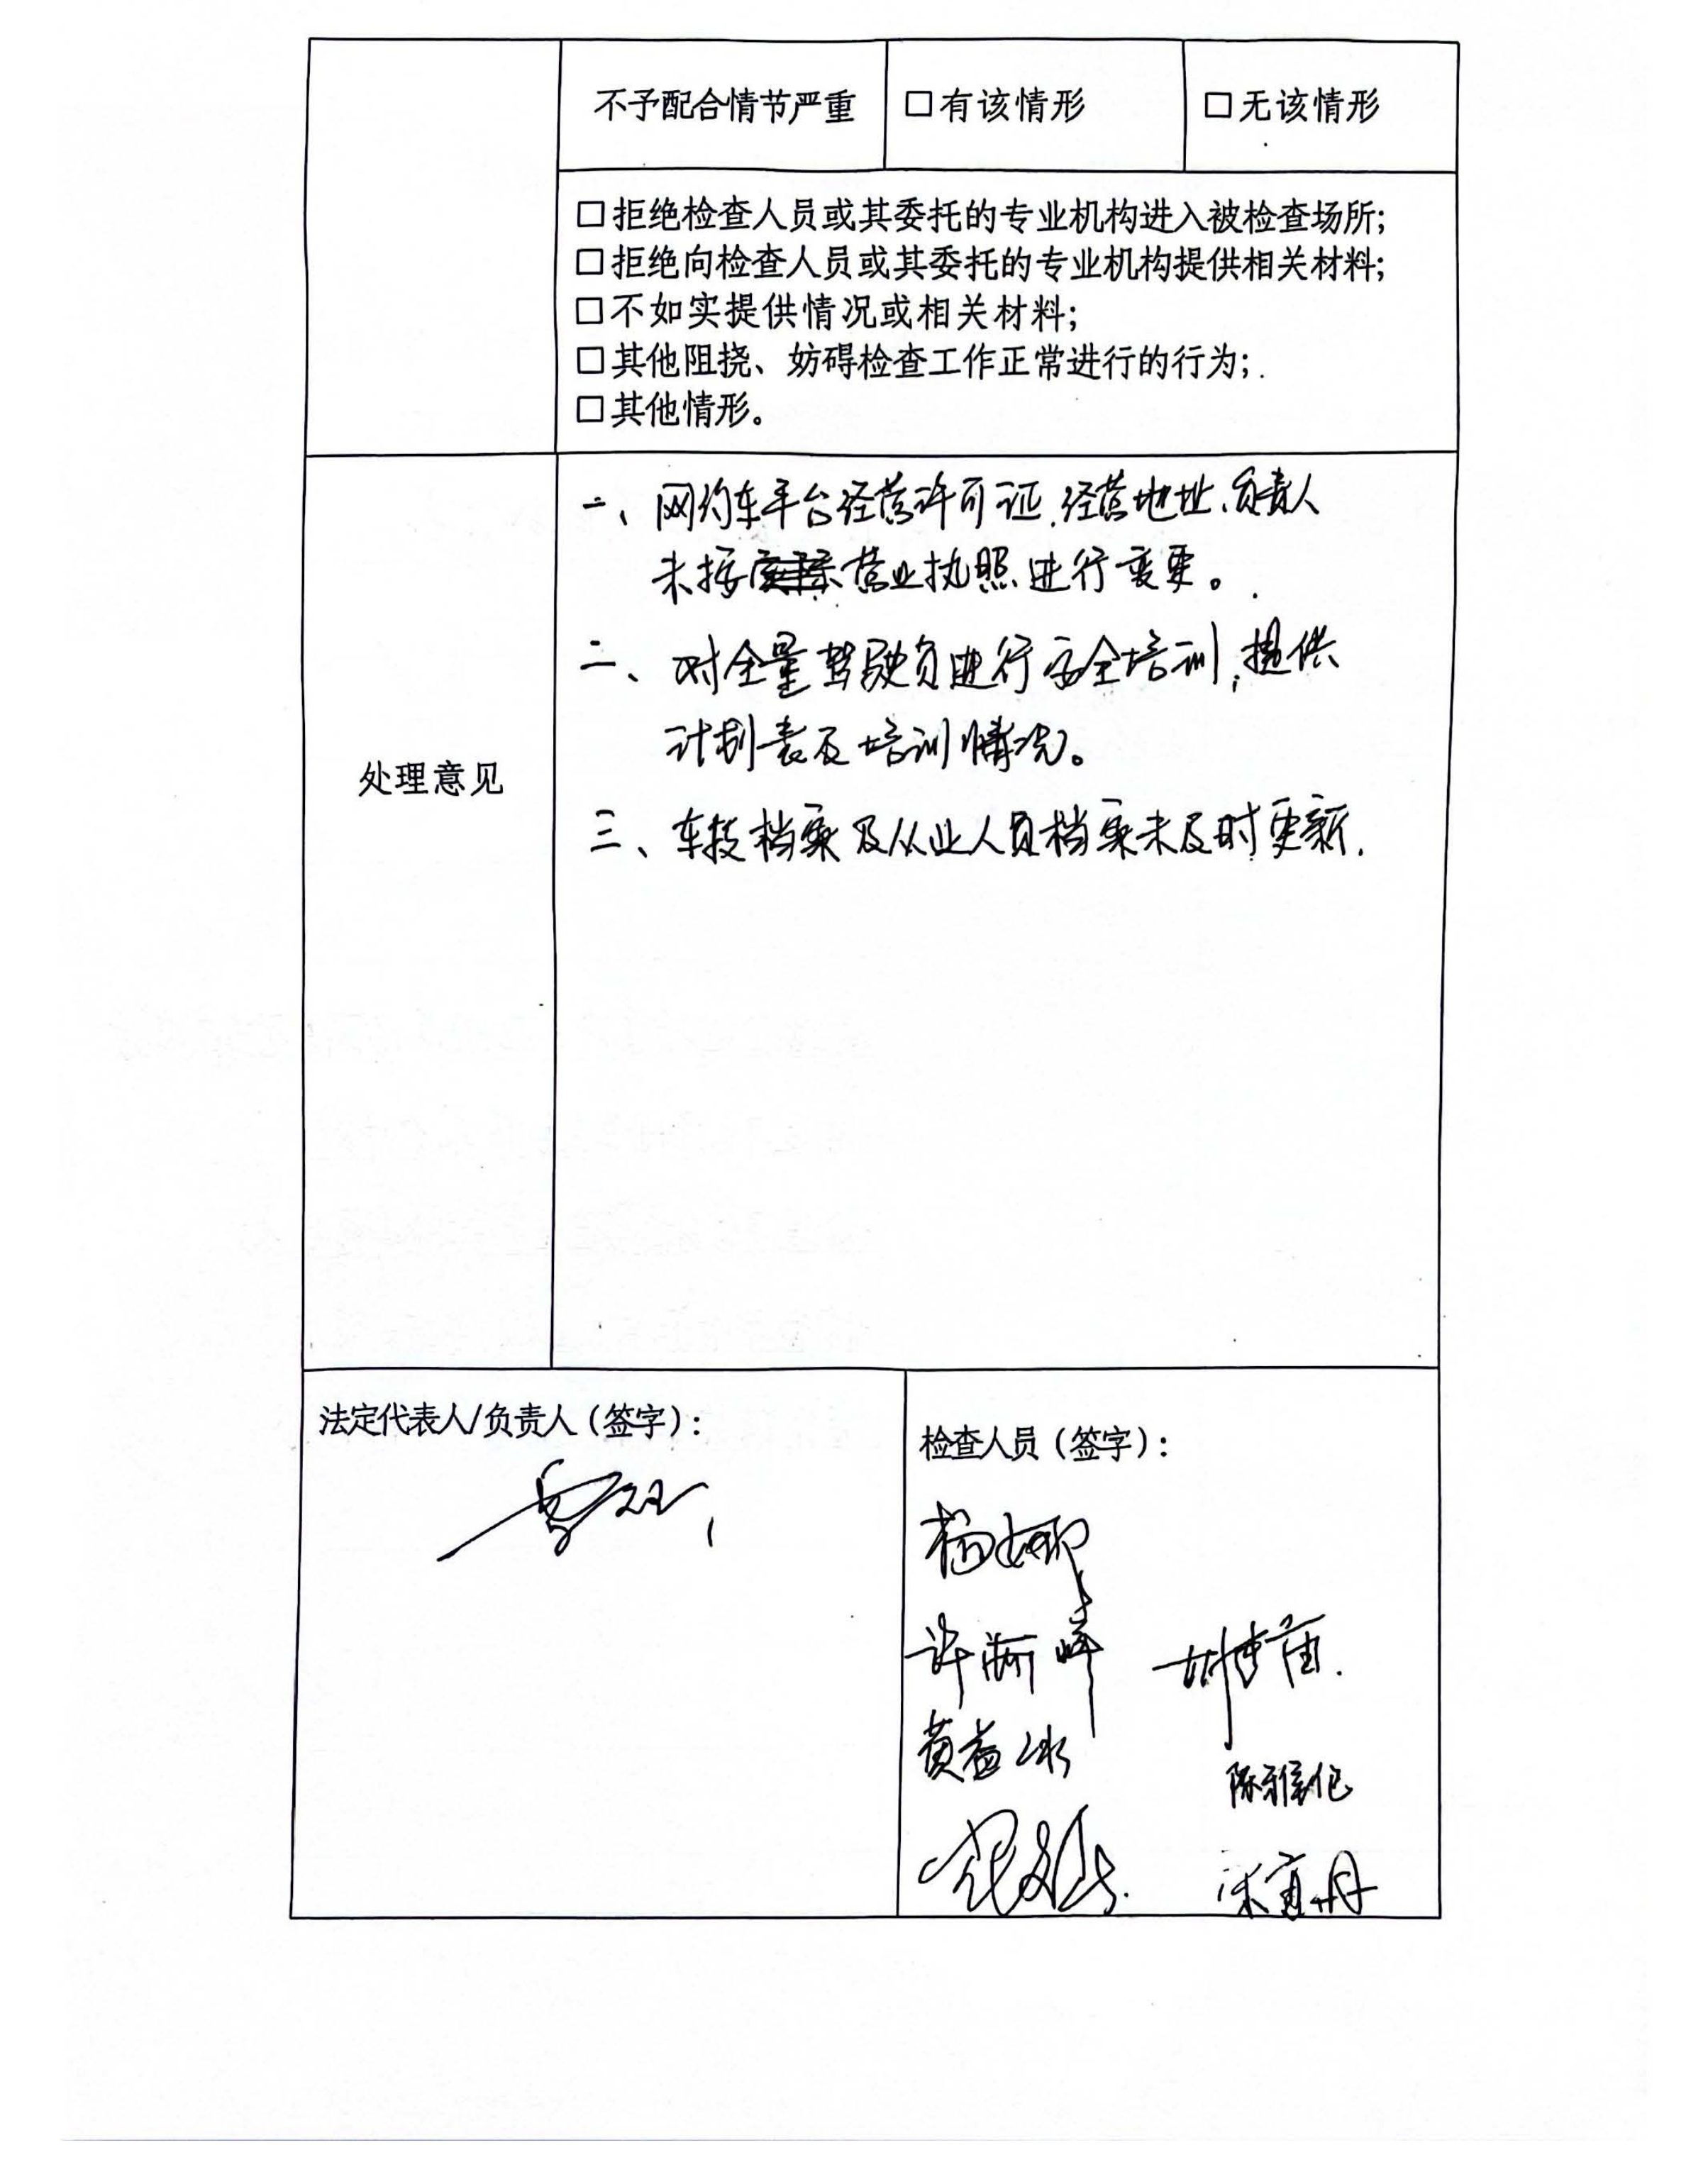 不予配合情节严重 □有该情形 □无该情形
□拒绝检查人员或其委托的专业机构进入被检查场所;
□拒绝向检查人员或其委托的专业机构提供相关材料;
□不如实提供情况或相关材料;
□其他阻挠、妨碍检查工作正常进行的行为;
□其他情形。
处理意见
一、网约车平台经营许可证、经营地址、负责人
未按营业执照进行变更。
二、对全量驾驶员进行安全培训,提供
计划表及培训情况。
三、车技档案及从业人员档案未及时更新.
法定代表人/负责人(签字):
检查人员(签字):
杨娜
黄益冰